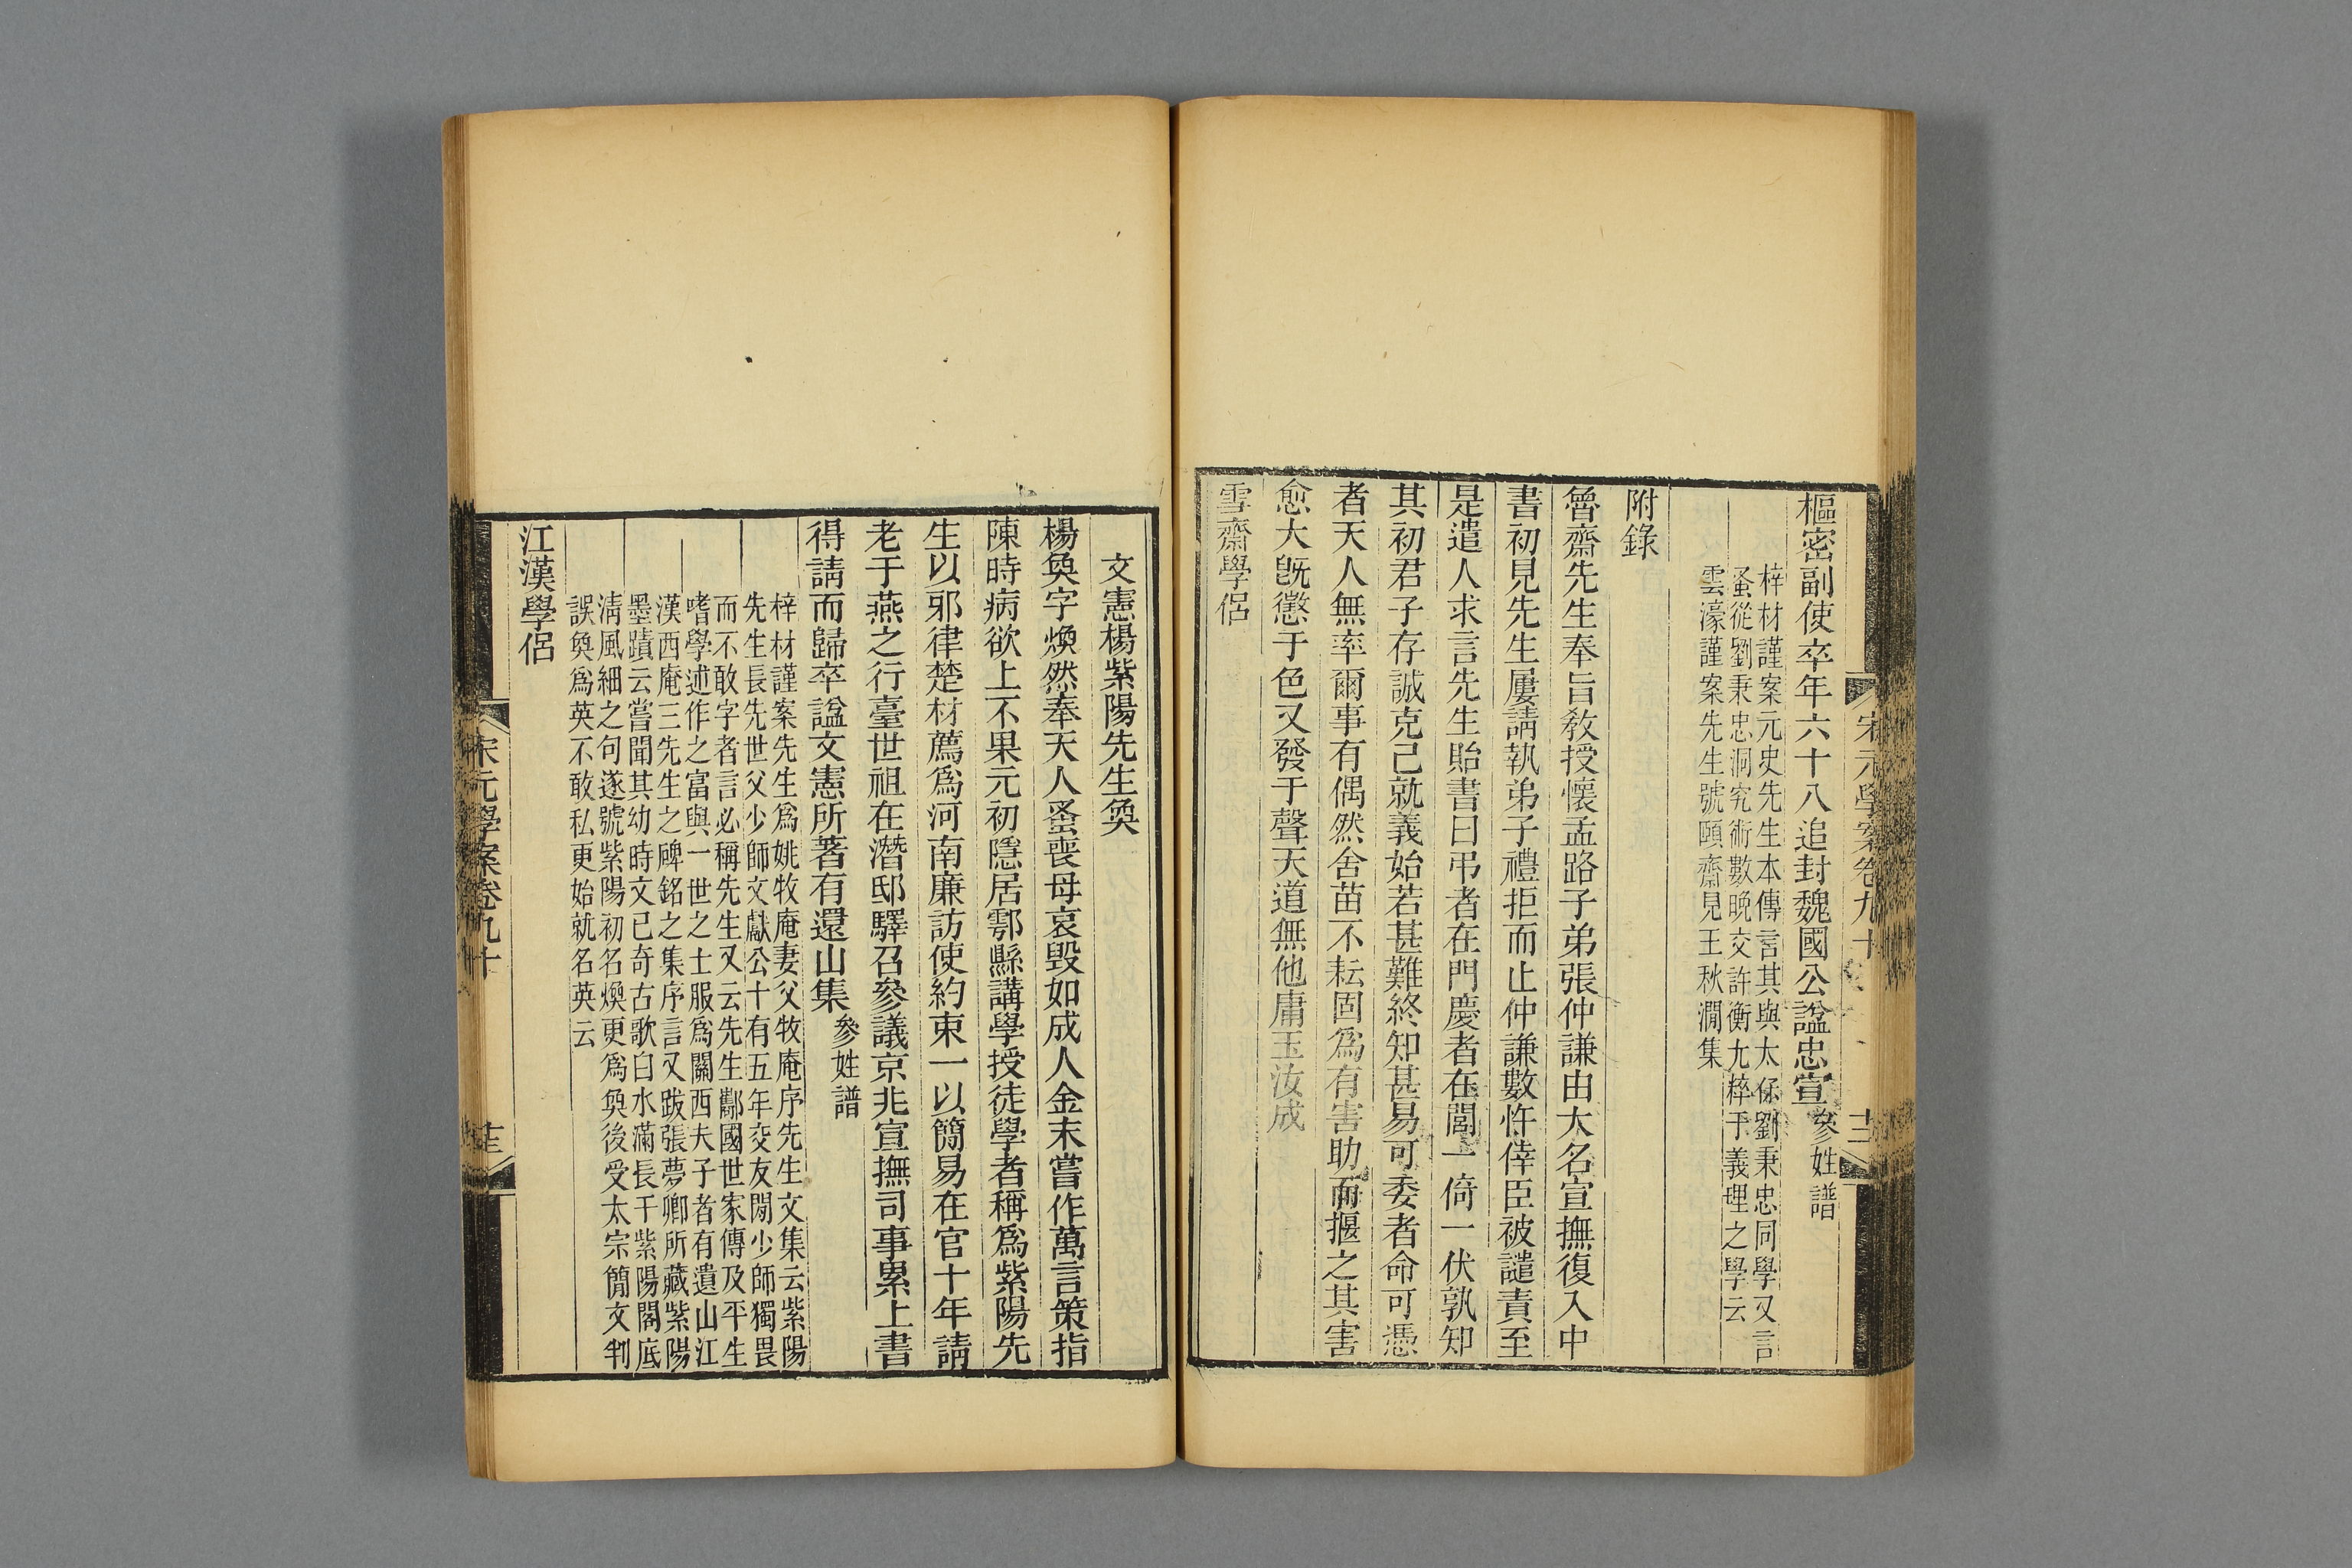 樞密副使卒年六十八追封魏國公諡忠宣參姓譜
梓材謹案元史先生本傳言其與太保劉秉忠同學又言
蚤從劉秉忠洞究術數晚交許衡尤粹于義理之學云
雲濠謹案先生號頤齋見王秋澗集
附錄
魯齋先生奉旨敎授懷孟路子弟張仲謙由大名宣撫復入中
書初見先生屢請執弟子禮拒而止仲謙數忤倖臣被譴責至
是遣人求言先生貽書曰弔者在門慶者在閭一倚一伏孰知
其初君子存誠克己就義始若甚難終知甚易可委者命可憑
者天人無率爾事有偶然舍苗不耘固爲有害助而揠之其害
愈大旣懲于色又發于聲天道無他庸玉汝成
雪齋學侶
宋元學案卷九十
文憲楊紫陽先生奐
楊奐字煥然奉天人蚤喪母哀毀如成人金末嘗作萬言策指
陳時病欲上不果元初隱居鄠縣講學授徒學者稱爲紫陽先
生以邪律楚材薦爲河南廉訪使約束一以簡易在官十年請
老于燕之行臺世祖在潛邸驛召參議京兆宣撫司事累上書
得請而歸卒諡文憲所著有還山集參姓譜
梓材謹案先生爲姚牧庵妻父牧庵序先生文集云紫陽
先生長先世父少師文獻公十有五年交友閒少師獨畏
而不敢字者言必稱先生又云先生酅國世家傳及平生
嗜學述作之富與一世之士服爲關西夫子者有遺山江
漢西庵三先生之碑銘之集序言又跋張夢卿所藏紫陽
墨蹟云嘗聞其幼時文已奇古歌白水滿長干紫陽閣底
淸風細之句遂號紫陽初名煥更爲奐後受太宗簡文判
誤奐爲英不敢私更始就名英云
江漢學侶
宋元學案卷九十